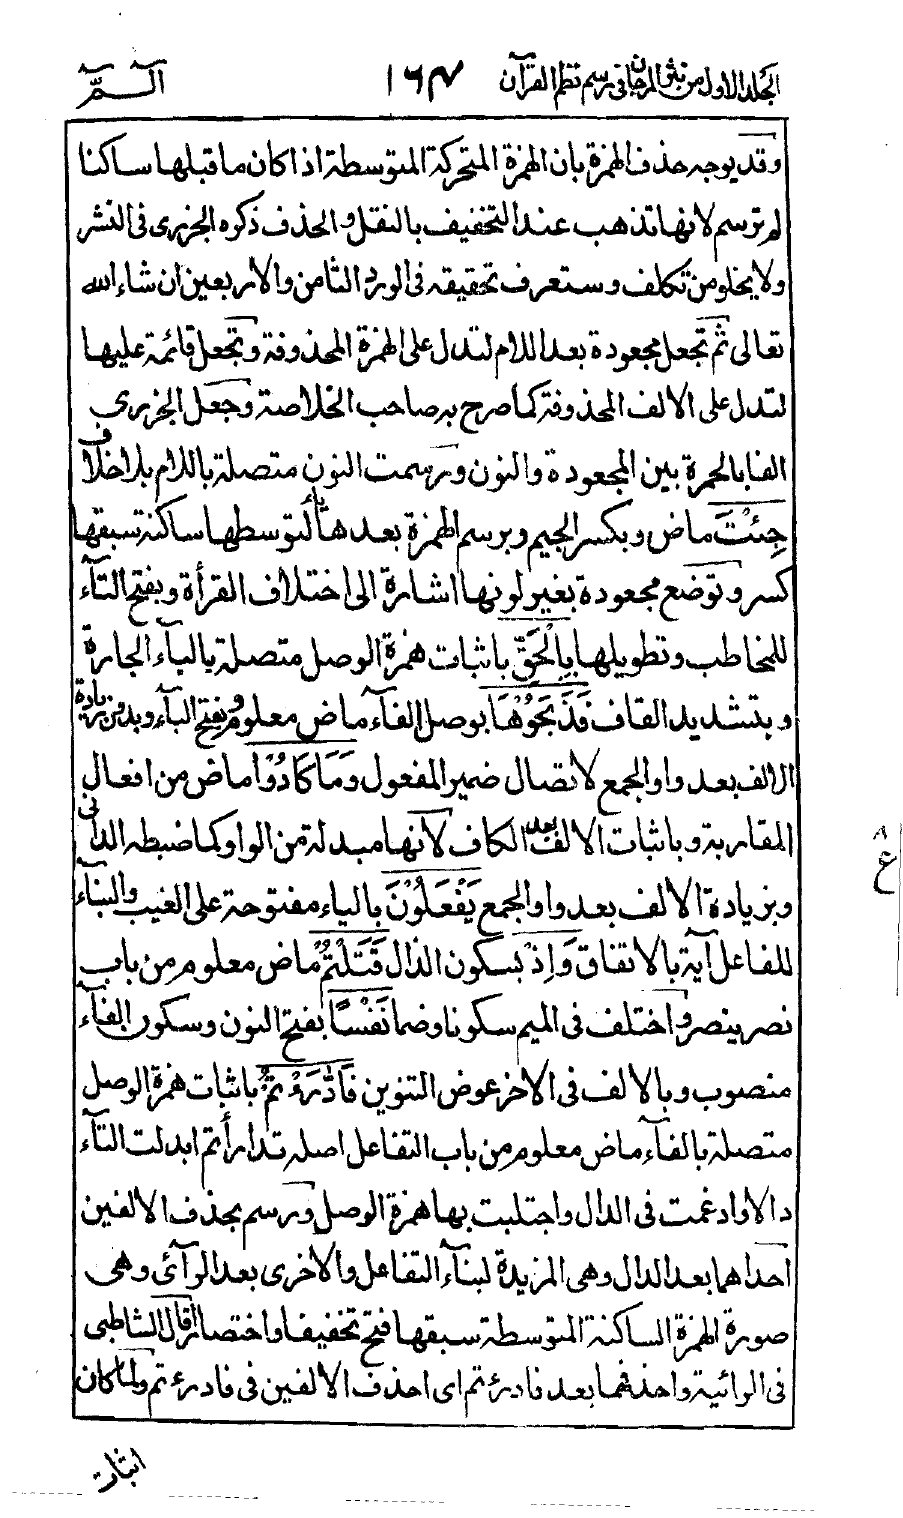 الجلد الاول من نثر المرجان في رسم نظم القرآن ١٦٧ الٓـمّٓ
وقد يوجه حذف الهمزة بان الهمزة المتحركة المتوسطة اذا كان ما قبلها ساكنا
لم ترسم لانها تذهب عند التخفيف بالنقل والحذف ذكره الجزري في النشر
ولا يخلو من تكلف وستعرف تحقيقه في الورد الثامن والاربعين ان شاء الله
تعالى ثم تجعل مجعودة بعد اللام لتدل على الهمزة المحذوفة وتجعل قائمة عليها
لتدل على الالف المحذوفة كما صرح به صاحب الخلاصة وجعل الجزري
الفا بالحمرة بين المجعودة والنون ورسمت النون متصلة باللام بلا خلاف
جِئْتَ ماض وبكسر الجيم وبرسم الهمزة بعدها ياءً لتوسطها ساكنة تسبقها
كسر وتوضع مجعودة بغير لونها اشارة الى اختلاف القرأة وبفتح التآء
للمخاطب وتطويلها بِالْحَقِّ باثبات همزة الوصل متصلة بالبآء الجارة
وبتشديد القاف فَذَبَحُوْهَا بوصل الفآء ماض معلوم وبفتح البآء وبدون زيادة
الالف بعد واو الجمع لاتصال ضمير المفعول وَمَا كَادُوْا ماض من افعال
المقاربة وباثبات الالف بعد الكاف لانها مبدلة من الواو كما ضبطه الداني
وبزيادة الالف بعد واو الجمع يَفْعَلُوْنَ بالياء مفتوحة على الغيب والبنآء
للفاعل آية بالاتفاق وَاِذْ بسكون الذال قَتَلْتُمْ ماض معلوم من باب
نصر ينصر واختلف في الميم سكونا وضما نَفْسًا بفتح النون وسكون الفآء
منصوب وبالالف في الاخر عوض التنوين فَادّٰرَءْتُمْ باثبات همزة الوصل
متصلة بالفآء ماض معلوم من باب التفاعل اصله تدارأتم ابدلت التآء
دالا وادغمت في الدال واجتلبت بها همزة الوصل ورسم بحذف الالفين
احداهما بعد الدال وهي المزيدة لبنآء التفاعل والاخرى بعد الرآئ وهي
صورة الهمزة الساكنة المتوسطة سبقها فتح تخفيفا واختصارا قال الشاطبي
في الرائية واحذفهما بعد فادرءتم اى احذف الالفين في فادرءتم ولما كان
اثبات
٨
ع